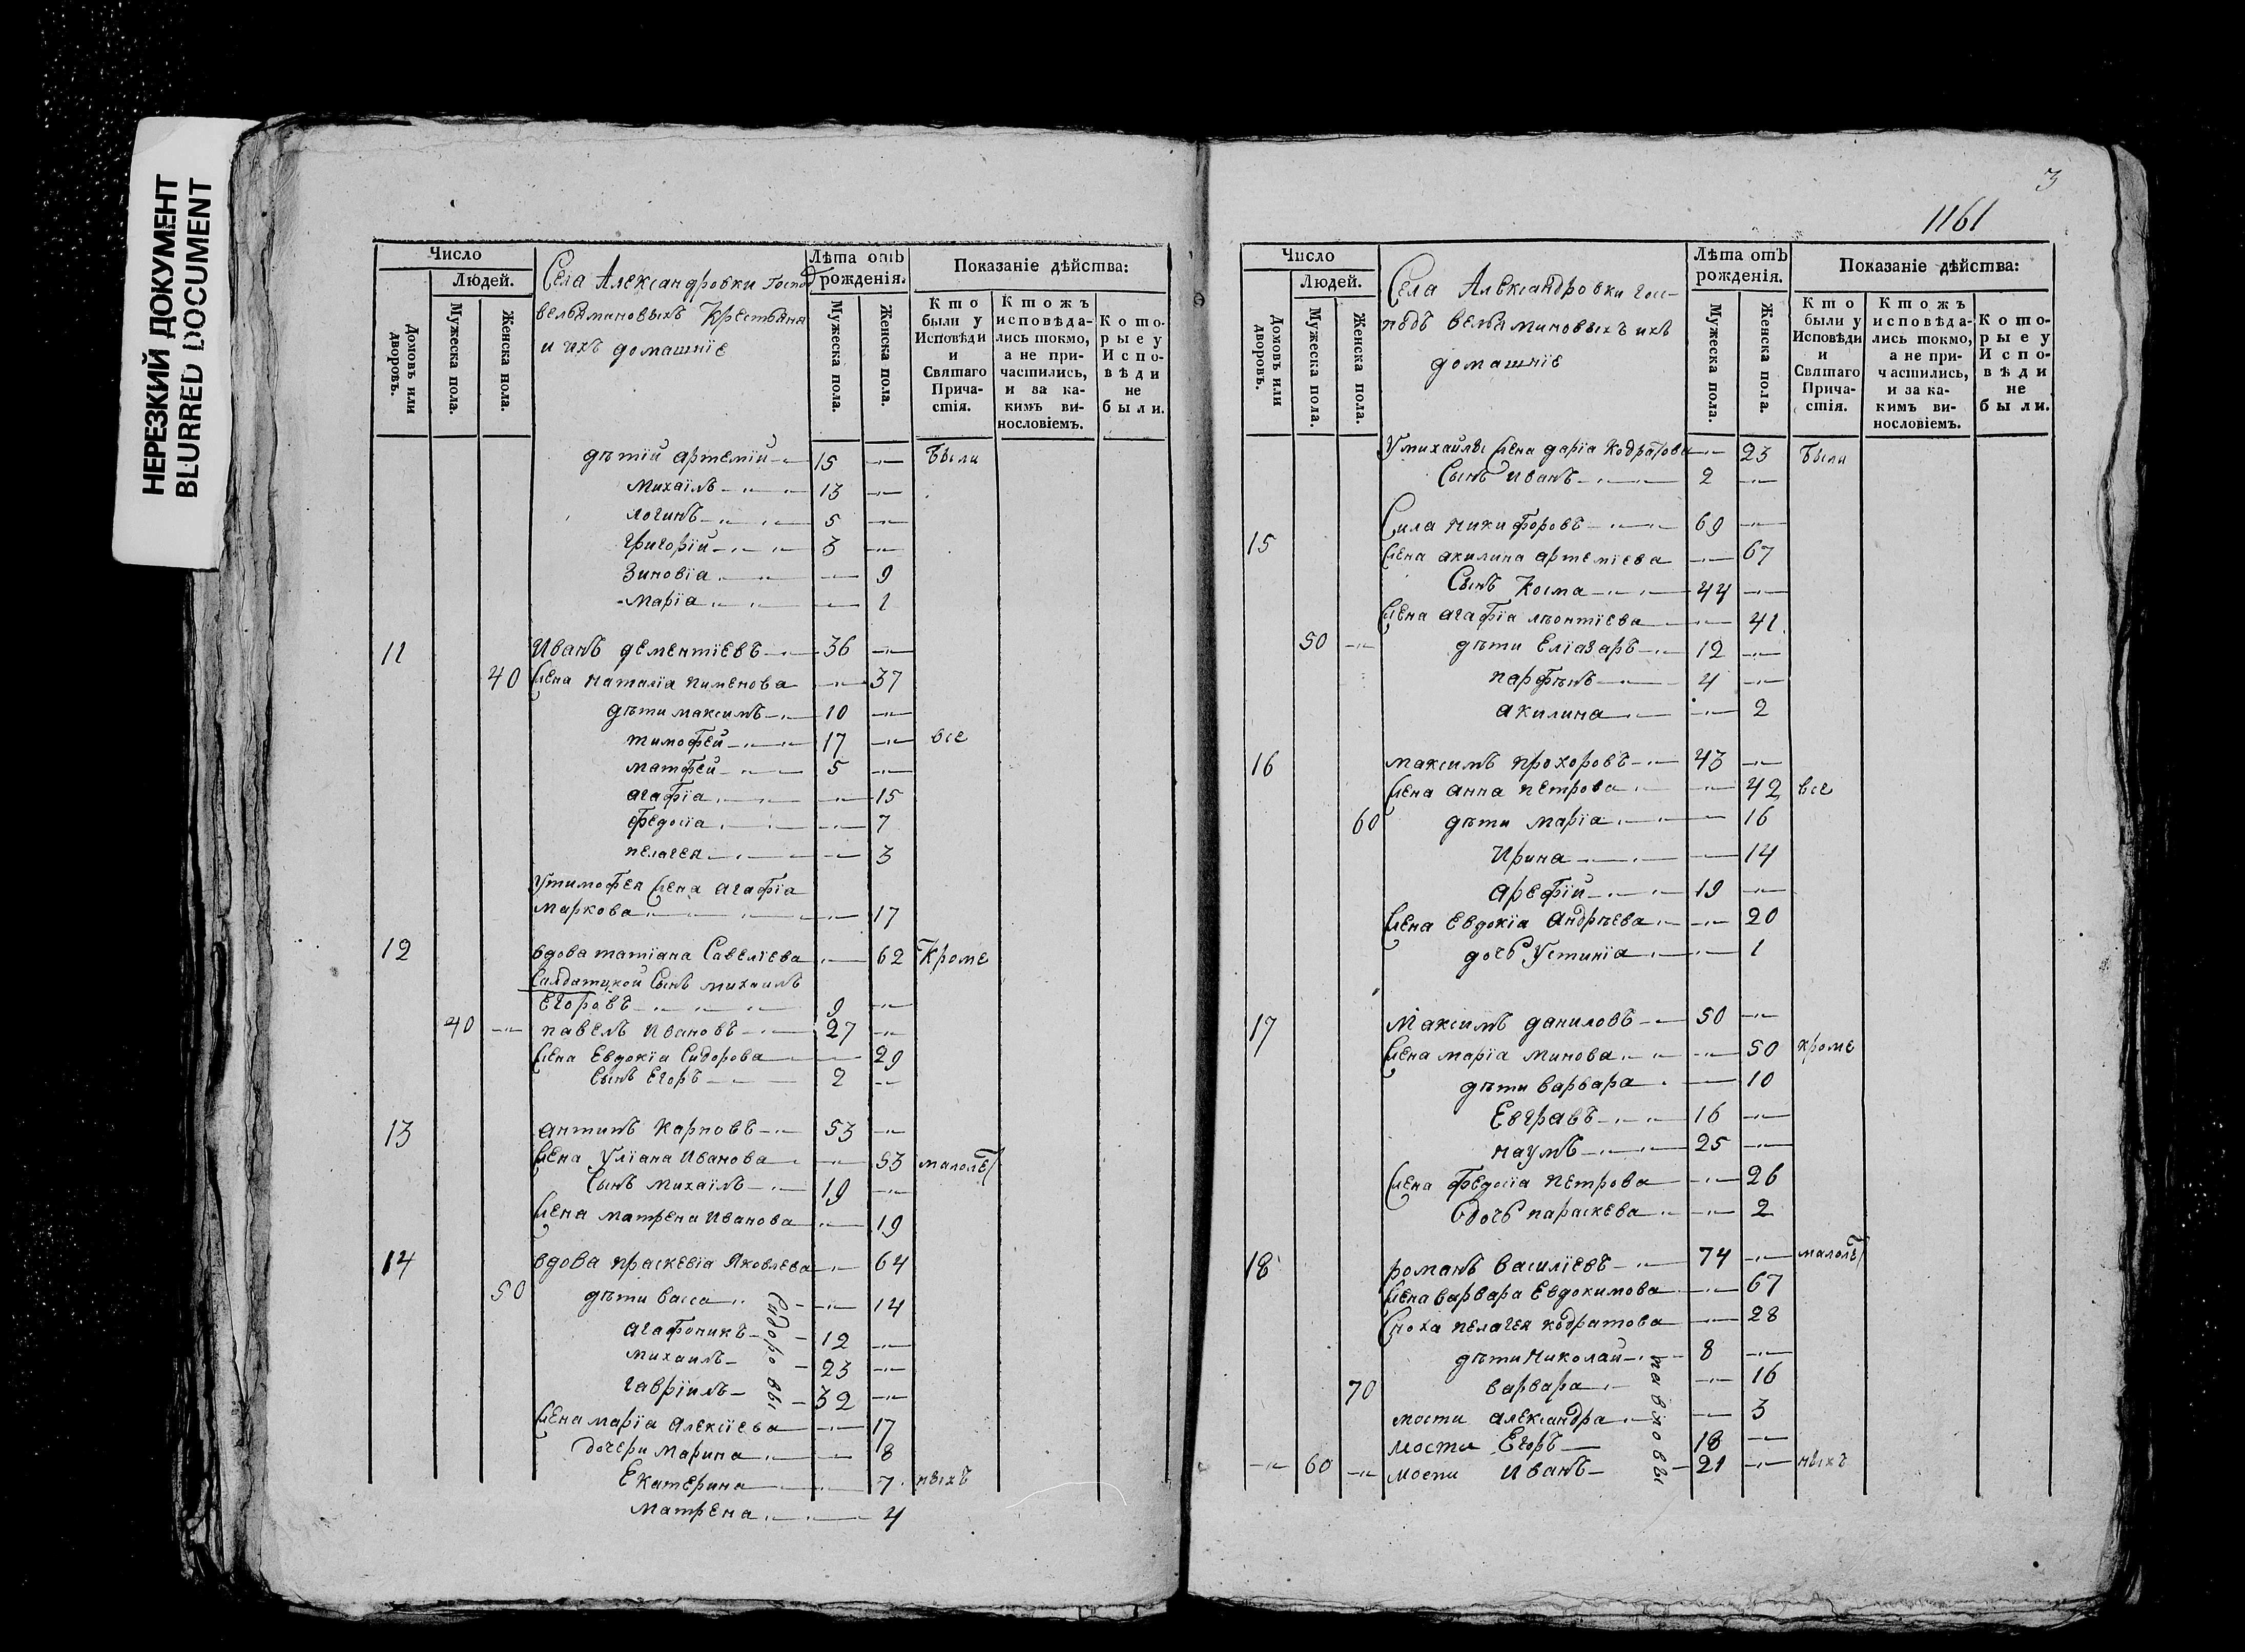 НЕРЕЗКИЙ ДОКУМЕНТ
BLURRED DOCUMENT
Число
Людей.
Домовъ или дворовъ.
Мужеска пола.
Женска пола.
Села Александровки Господ
вельяминовыхъ Крестьяня
и ихъ домашніе
Лѣта отъ рожденія.
Мужеска пола.
Женска пола.
Показаніе дѣйства:
Кто были у Исповѣди и Святаго Причастія.
Ктожъ исповѣдались токмо, а не причастились, и за какимъ винословіемъ.
Которые у Исповѣди не были.
дѣтій артемій 15 Были
Михаилъ 13
логинъ 5
григорій 3
Зиновіа 9
Маріа 1
11 Иванъ дементіевъ 36
40 жена наталіа пименова 37
дѣти максимъ 10
тимофей 17 все
матфей 5
агафіа 15
федосіа 7
пелагея 3
У тимофея жена агафіа
маркова 17
12 вдова татіана Савеліева 62 Кроме
Салдатцкой Сынъ михаилъ
Егоровъ 9
40 павелъ Ивановъ 27
жена Евдокіа Сидорова 29
Сынъ Егоръ 2
13 антипъ Карповъ 53
жена Уліана Иванова 53 малолѣт
Сынъ Михаилъ 19
жена матрена Иванова 19
14 вдова праскевіа Яковлева 64
50 дѣти васса 14
агафоникъ 12
михаилъ 23
гавріилъ 32
Сидоровы
жена маріа Алексіева 17
дочери Марина 8
Екатерина 7 ныхъ
Матрена 4
3
1161
Число
Людей.
Домовъ или дворовъ.
Мужеска пола.
Женска пола.
Села Александровки гос-
подъ вельяминовыхъ ихъ
домашніе
Лѣта отъ рожденія.
Мужеска пола.
Женска пола.
Показаніе дѣйства:
Кто были у Исповѣди и Святаго Причастія.
Ктожъ исповѣдались токмо, а не причастились, и за какимъ винословіемъ.
Которые у Исповѣди не были.
У михайлы жена даріа Кодратова 23 Были
Сынъ иванъ 2
15 Сила никифоровъ 69
жена акилина артеміева 67
Сынъ Косма 44
жена агафіа леонтіева 41
50 дѣти Еліазаръ 12
парфенъ 4
акилина 2
16 максимъ прохоровъ 43
жена анна петрова 42 все
60 дѣти маріа 16
Ирина 14
арефій 19
жена Евдокіа Андрѣева 20
дочь Устиніа 1
17 Максимъ даниловъ 50
жена маріа минова 50 кроме
дѣти варвара 10
Евгравъ 16
наумъ 25
жена федосіа петрова 26
дочь параскева 2
18 романъ василіевъ 74 малолѣт
жена варвара Евдокимова 67
Сноха пелагея кодратова 28
дѣти Николай 8
70 варвара 16
александра 3
Егоръ 18
60 Иванъ 21 ныхъ
павловы